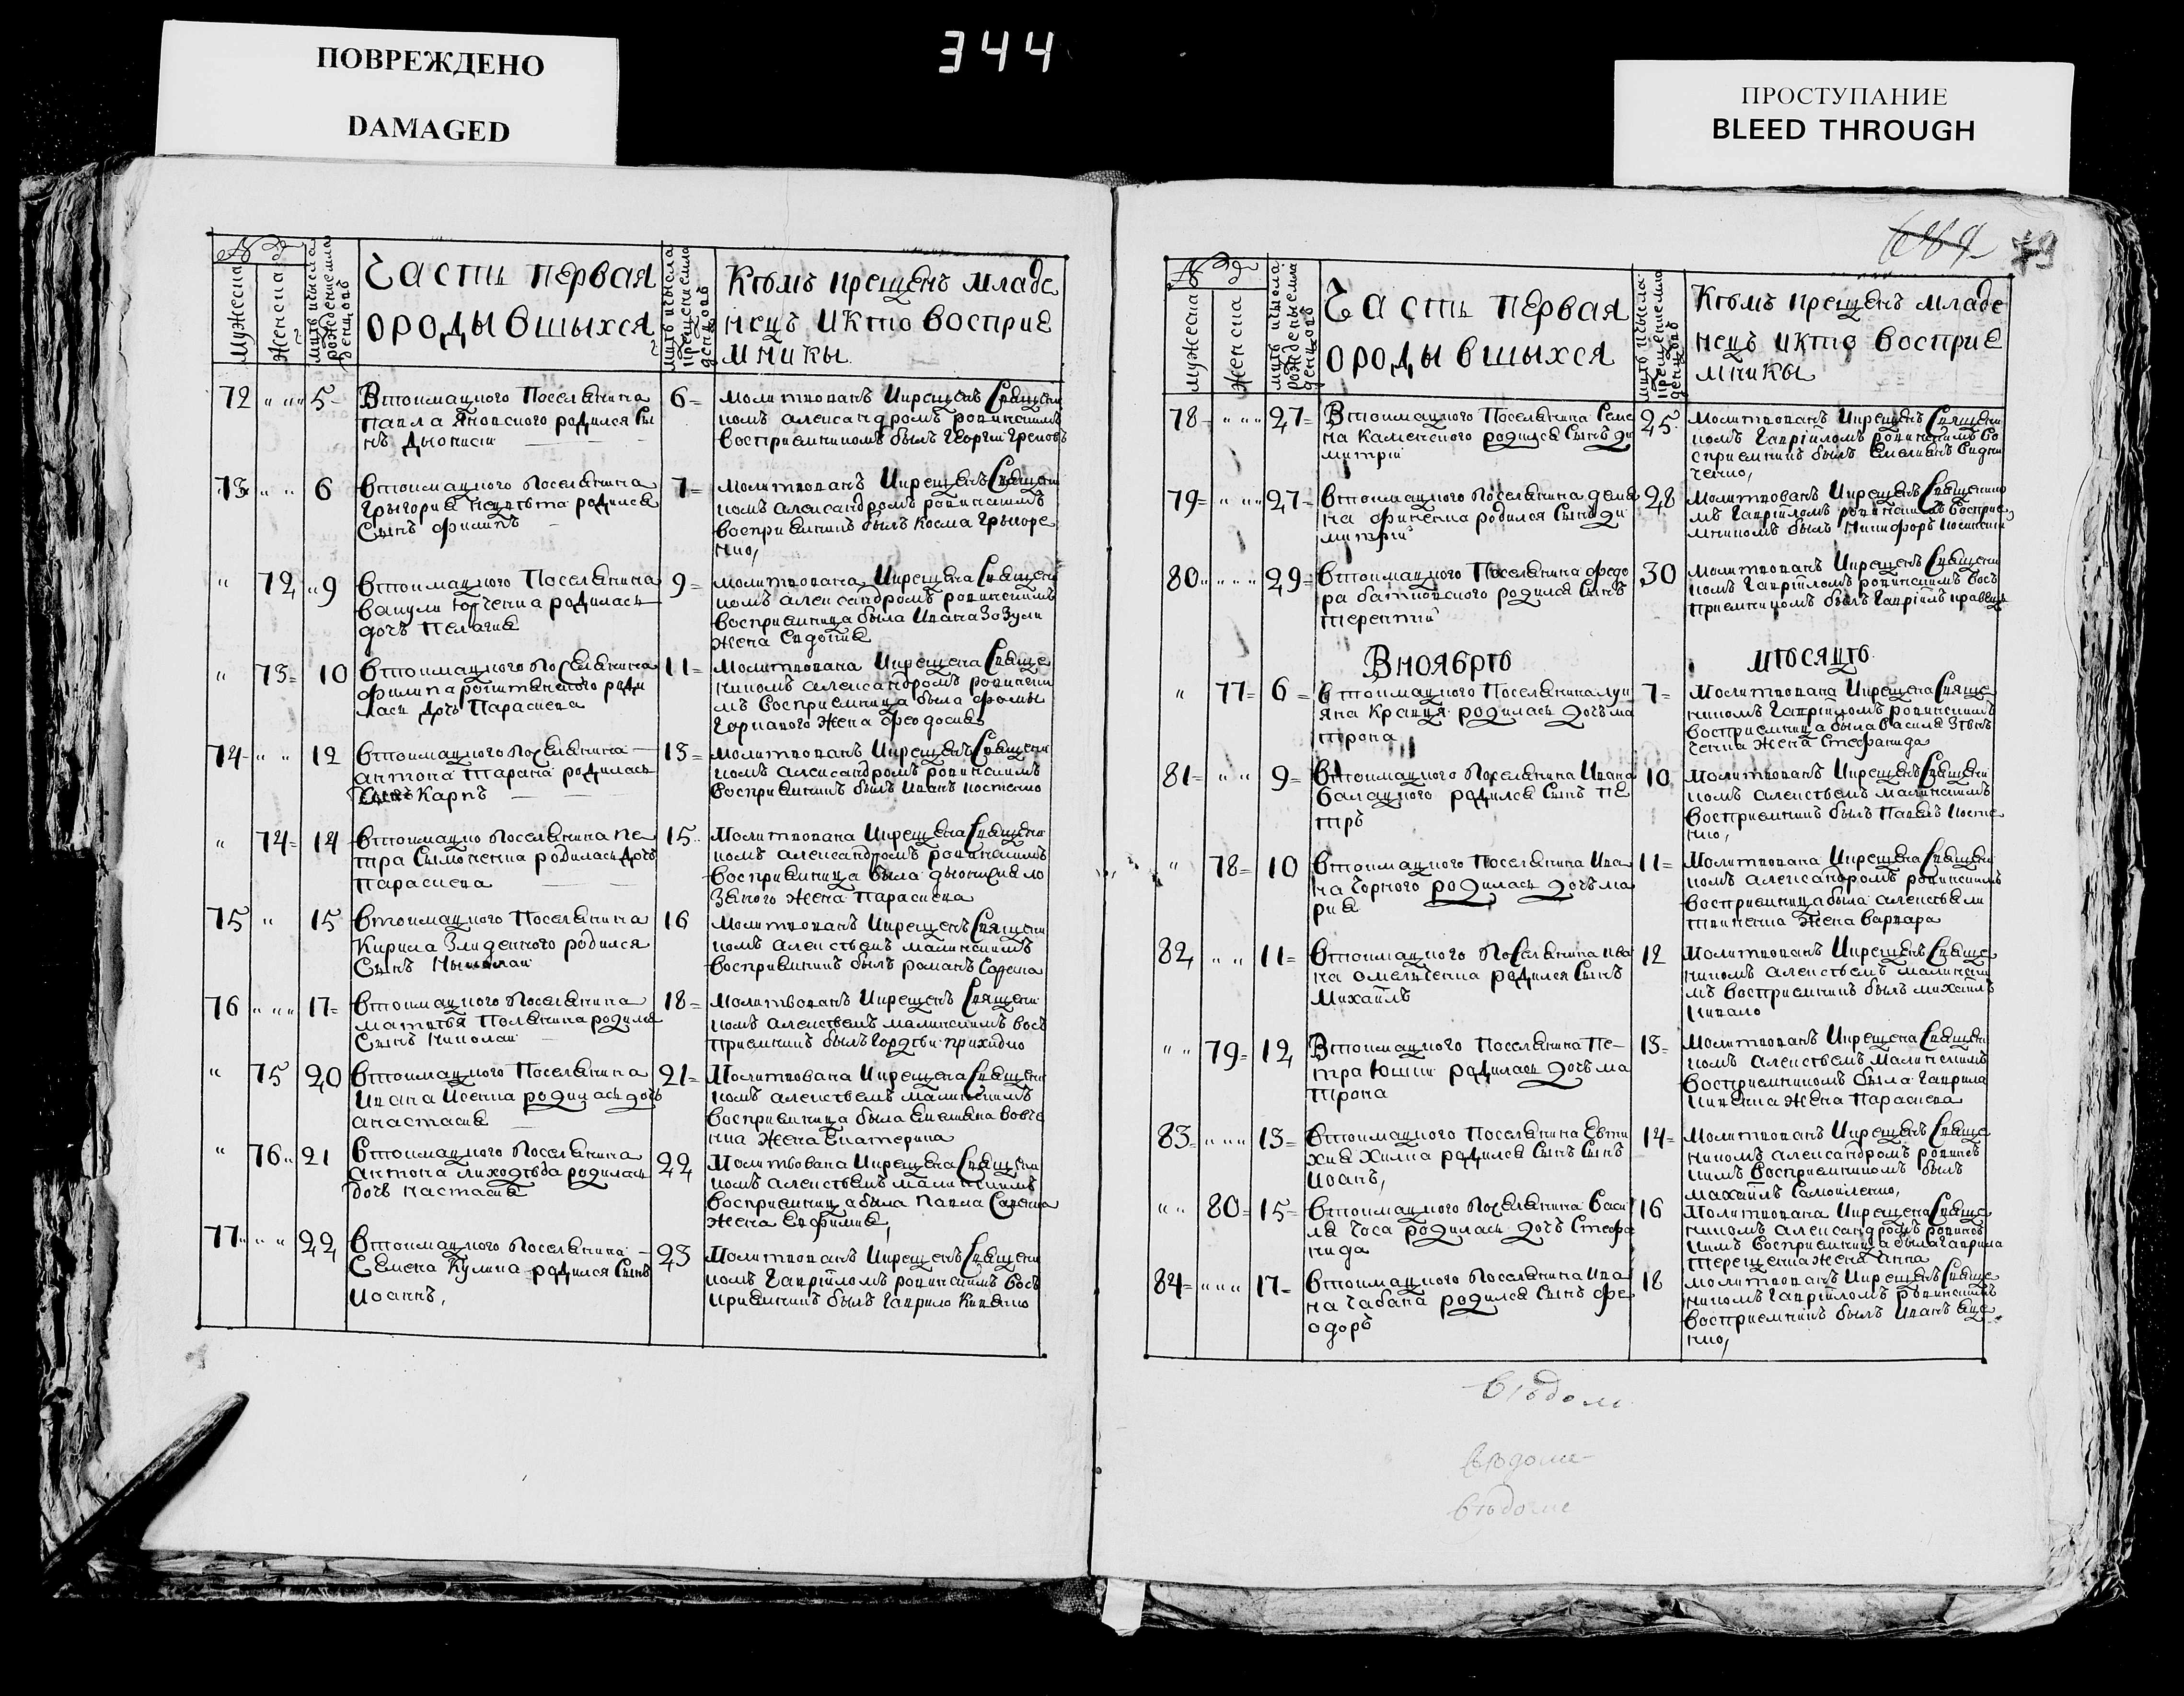 ПОВРЕЖДЕНО
DAMAGED
344
ПРОСТУПАНИЕ
BLEED THROUGH
Мужеска
Женска
Часть первая
ородывшыхся
Кѣмъ крещенъ младе
нецъ икто восприе
мники
72 5 Втоимацкого Поселянина 6
павла Яновского родился Сы
нъ Дионисий
молитвованъ Икрещенъ Священ
комъ александромъ ровинскимъ
восприемникомъ былъ Георгий Грековъ
73 6 Втоимацкого Поселянина 7
Грыгория родился
Сынъ Филипъ
молитвованъ Икрещенъ Священ
комъ александромъ ровинскимъ
восприемникъ былъ Козма Грыгоре
нко,
72 9 Втоимацкого Поселянина 9
вакули Юрченка родилась
дочъ Пелагия
молитвована Икрещена Священ
комъ александромъ ровинскимъ
восприемница была Ивана Зозули
жена Евдокия
73 10 Втоимацкого Поселянина 11
филипа роди
лась дочь Параскева
Молитвована Икрещена Свяще
никомъ александромъ ровински
мъ восприемница была фомы
Горкавого жена феодосия
74 12 Втоимацкого Поселянина 13
антона тарана родилась
Карпъ
Молитвованъ Икрещенъ Священ
комъ александромъ ровинскимъ
восприемникъ былъ Иванъ костенко
74 14 Втоимацко Поселянина пе 15
тра Сымоненка родилась дочъ
параскева
Молитвована Икрещена Священ
комъ александромъ ровинскимъ
восприемница была дионисия ло
зового жена Параскева
75 15 Втоимацкого Поселянина 16
Кирила Злиденного родился
Сынъ Николай
Молитвованъ Икрещенъ Священ
комъ алексѣемъ малинскимъ
восприемникъ былъ романъ
76 17 Втоимацкого Поселянина 18
матвѣя Поленика родился
Сынъ Николай
Молитвованъ Икрещенъ Священ
комъ алексѣемъ малинскимъ вос
приемникъ былъ Гордѣй приходко
75 20 Втоимацкого Поселянина 21
Ивана родилась дочъ
анастасия
Молитвована Икрещена Священ
комъ алексѣемъ малинскимъ
восприемница была Емелияна вовче
нка жена Екатерина
76 21 Втоимацкого Поселянина 22
антона лиходѣда родилась
дочъ настасия
Молитвована Икрещена Священ
комъ алексѣемъ малинскимъ
восприемница была павла Савенка
жена Евфимия,
77 22 Втоимацкого Поселянина 23
Семена Кулика родился Сынъ
Иоаннъ,
Молитвованъ Икрещенъ Священ
комъ Гавриїломъ ровинскимъ вос
приемникъ былъ Гаврило
Мужеска
Женска
Часть первая
ородывшыхся
Кѣмъ крещенъ младе
нецъ икто восприе
мники
78 27 Втоимацкого Поселянина Семе 25
на Каменского родился Сынъ Ди
митрий
молитвованъ Икрещенъ Священ
комъ Гавриїломъ ровинскимъ во
сприемникъ былъ Емелиянъ
ченко,
79 27 Втоимацкого Поселянина 28
на родился Сынъ Ди
митрий
Молитвованъ Икрещенъ Священико
мъ Гавриїломъ ровинскимъ восприе
мникомъ былъ Никифоръ
80 29 Втоимацкого Поселянина федо 30
ра батковского родился Сынъ
терентий
Молитвованъ Икрещенъ Священ
комъ Гавриїломъ ровинскимъ вос
приемникомъ былъ Гавриїлъ кравецъ
Вноябрѣ мѣсяцѣ
77 6 Втоимацкого Поселянина луки 7
яна Кравця родилась Дочъ ма
трона
Молитвована Икрещена Свяще
никомъ Гавриїломъ ровинскимъ
восприемница была василя Зѣнъ
ченка жена Стефанида
81 9 Втоимацкого Поселянина Ивана 10
балацкого родился Сынъ пе
тръ
Молитвованъ Икрещенъ Священ
комъ алексѣемъ малинскимъ
восприемникъ былъ Павелъ Косте
нко,
78 10 Втоимацкого Поселянина Ива 11
на Чорного родилась Дочъ ма
рия
Молитвована Икрещена Священ
комъ александромъ ровинскимъ
восприемница была алексѣя ли
твиненка жена варвара
82 11 Втоимацкого Поселянина ива 12
на омельченка родился Сынъ
Михаилъ
Молитвованъ Икрещенъ Свяще
никомъ алексѣемъ малински
мъ восприемникъ былъ михаилъ
79 12 Втоимацкого Поселянина Пе 13
тра Юшки родилась Дочъ ма
трона
Молитвована Икрещена Священ
комъ алексѣемъ малинскимъ
восприемникомъ была Гаврила
жена Параскева
83 13 Втоимацкого Поселянина Евти 14
хия Хилка родился Сынъ Сынъ
Иоанъ,
Молитвованъ Икрещенъ Свяще
никомъ александромъ ровинс
кимъ восприемникомъ былъ
михаилъ Самойленко,
80 15 Втоимацкого Поселянина васи 16
ля Чоса родилась Дочъ Стефа
нида
Молитвована Икрещена Свяще
никомъ александромъ ровинс
кимъ восприемница была Гаврила
терещенка жена анна
84 17 Втоимацкого Поселянина ива 18
на Чабана родился Сынъ фе
одоръ
молитвованъ Икрещенъ Свяще
никомъ Гавриїломъ ровинскимъ
восприемникъ былъ Иванъ яце
нко,
вѣдом
ведоме
вѣдоме